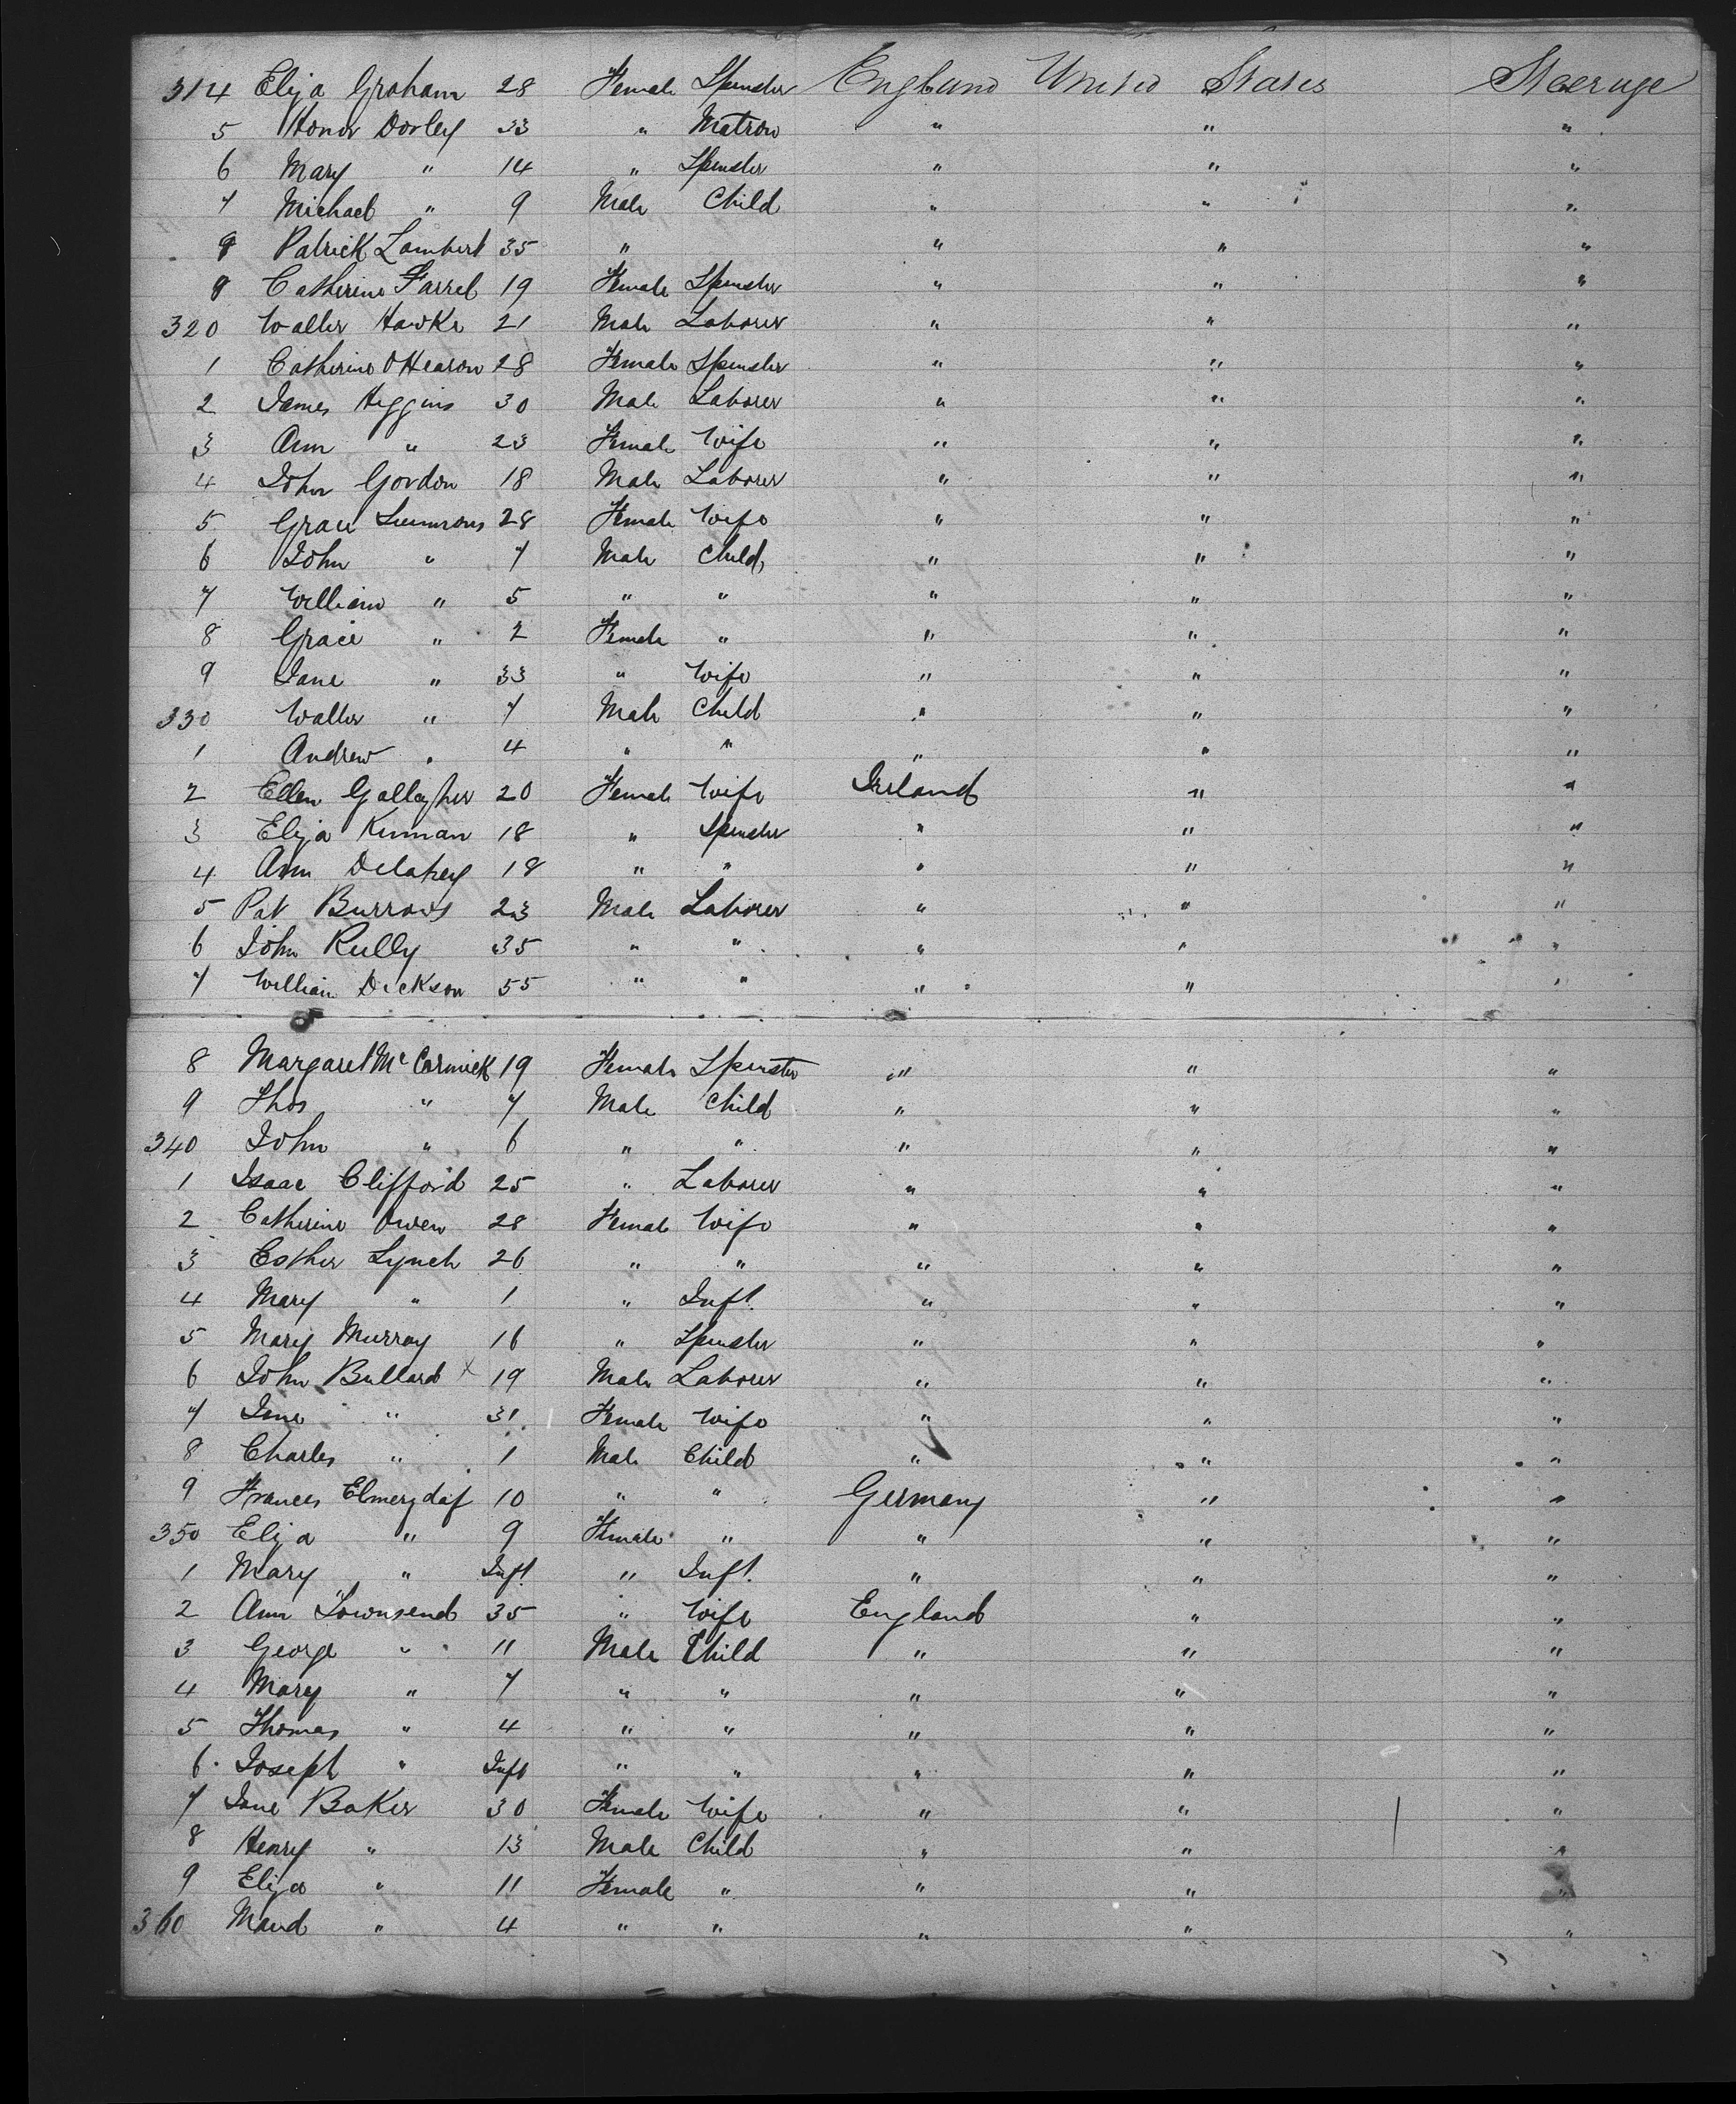 314 Eliza Graham 28 Female Spinster England United States Steerage
5 Honor Dorley 33 " Matron " " "
6 Mary " 14 " Spinster " " "
7 Michael " 9 Male Child " " "
8 Patrick Lambert 35 " " " "
9 Catherine Farrel 19 Female Spinster " " "
320 Walter Hawke 21 Male Laborer " " "
1 Catherine OHearon 28 Female Spinster " " "
2 James Higgins 30 Male Laborer " " "
3 Ann " 23 Female Wife " " "
4 John Gordon 18 Male Laborer " " "
5 Grace Summons 28 Female Wife " " "
6 John " 7 Male Child " " "
7 William " 5 " " " " "
8 Grace " 2 Female " " " "
9 Jane " 33 " Wife " " "
330 Walter " 7 Male Child " " "
1 Andrew " 4 " " " " "
2 Ellen Gallagher 20 Female Wife Ireland " "
3 Eliza Kinnan 18 " Spinster " " "
4 Ann Delahey 18 " " " " "
5 Pat Burrows 23 Male Laborer " " "
6 John Rully 35 " " " " "
7 William Dickson 55 " " " " "
8 Margaret McCormick 19 Female Spinster " " "
9 Thos " 7 Male Child " " "
340 John " 6 " " " " "
1 Isaac Clifford 25 " Laborer " " "
2 Catherine Owen 28 Female Wife " " "
3 Esther Lynch 26 " " " " "
4 Mary " 1 " Inft. " " "
5 Mary Murray 16 " Spinster " " "
6 John Bullard x 19 Male Laborer " " "
7 Jane " 31 Female Wife " " "
8 Charles " 1 Male Child " " "
9 Frances Elmerzdaf 10 " " Germany " "
350 Eliza " 9 Female " " " "
1 Mary " Inft. " Inft. " " "
2 Ann Townsend 35 " Wife England " "
3 George " 11 Male Child " " "
4 Mary " 7 " " " " "
5 Thomas " 4 " " " " "
6 Joseph " Inft " " " " "
7 Jane Baker 30 Female Wife " " "
8 Henry " 13 Male Child " " "
9 Eliza " 11 Female " " " "
360 Maud " 4 " " " " "